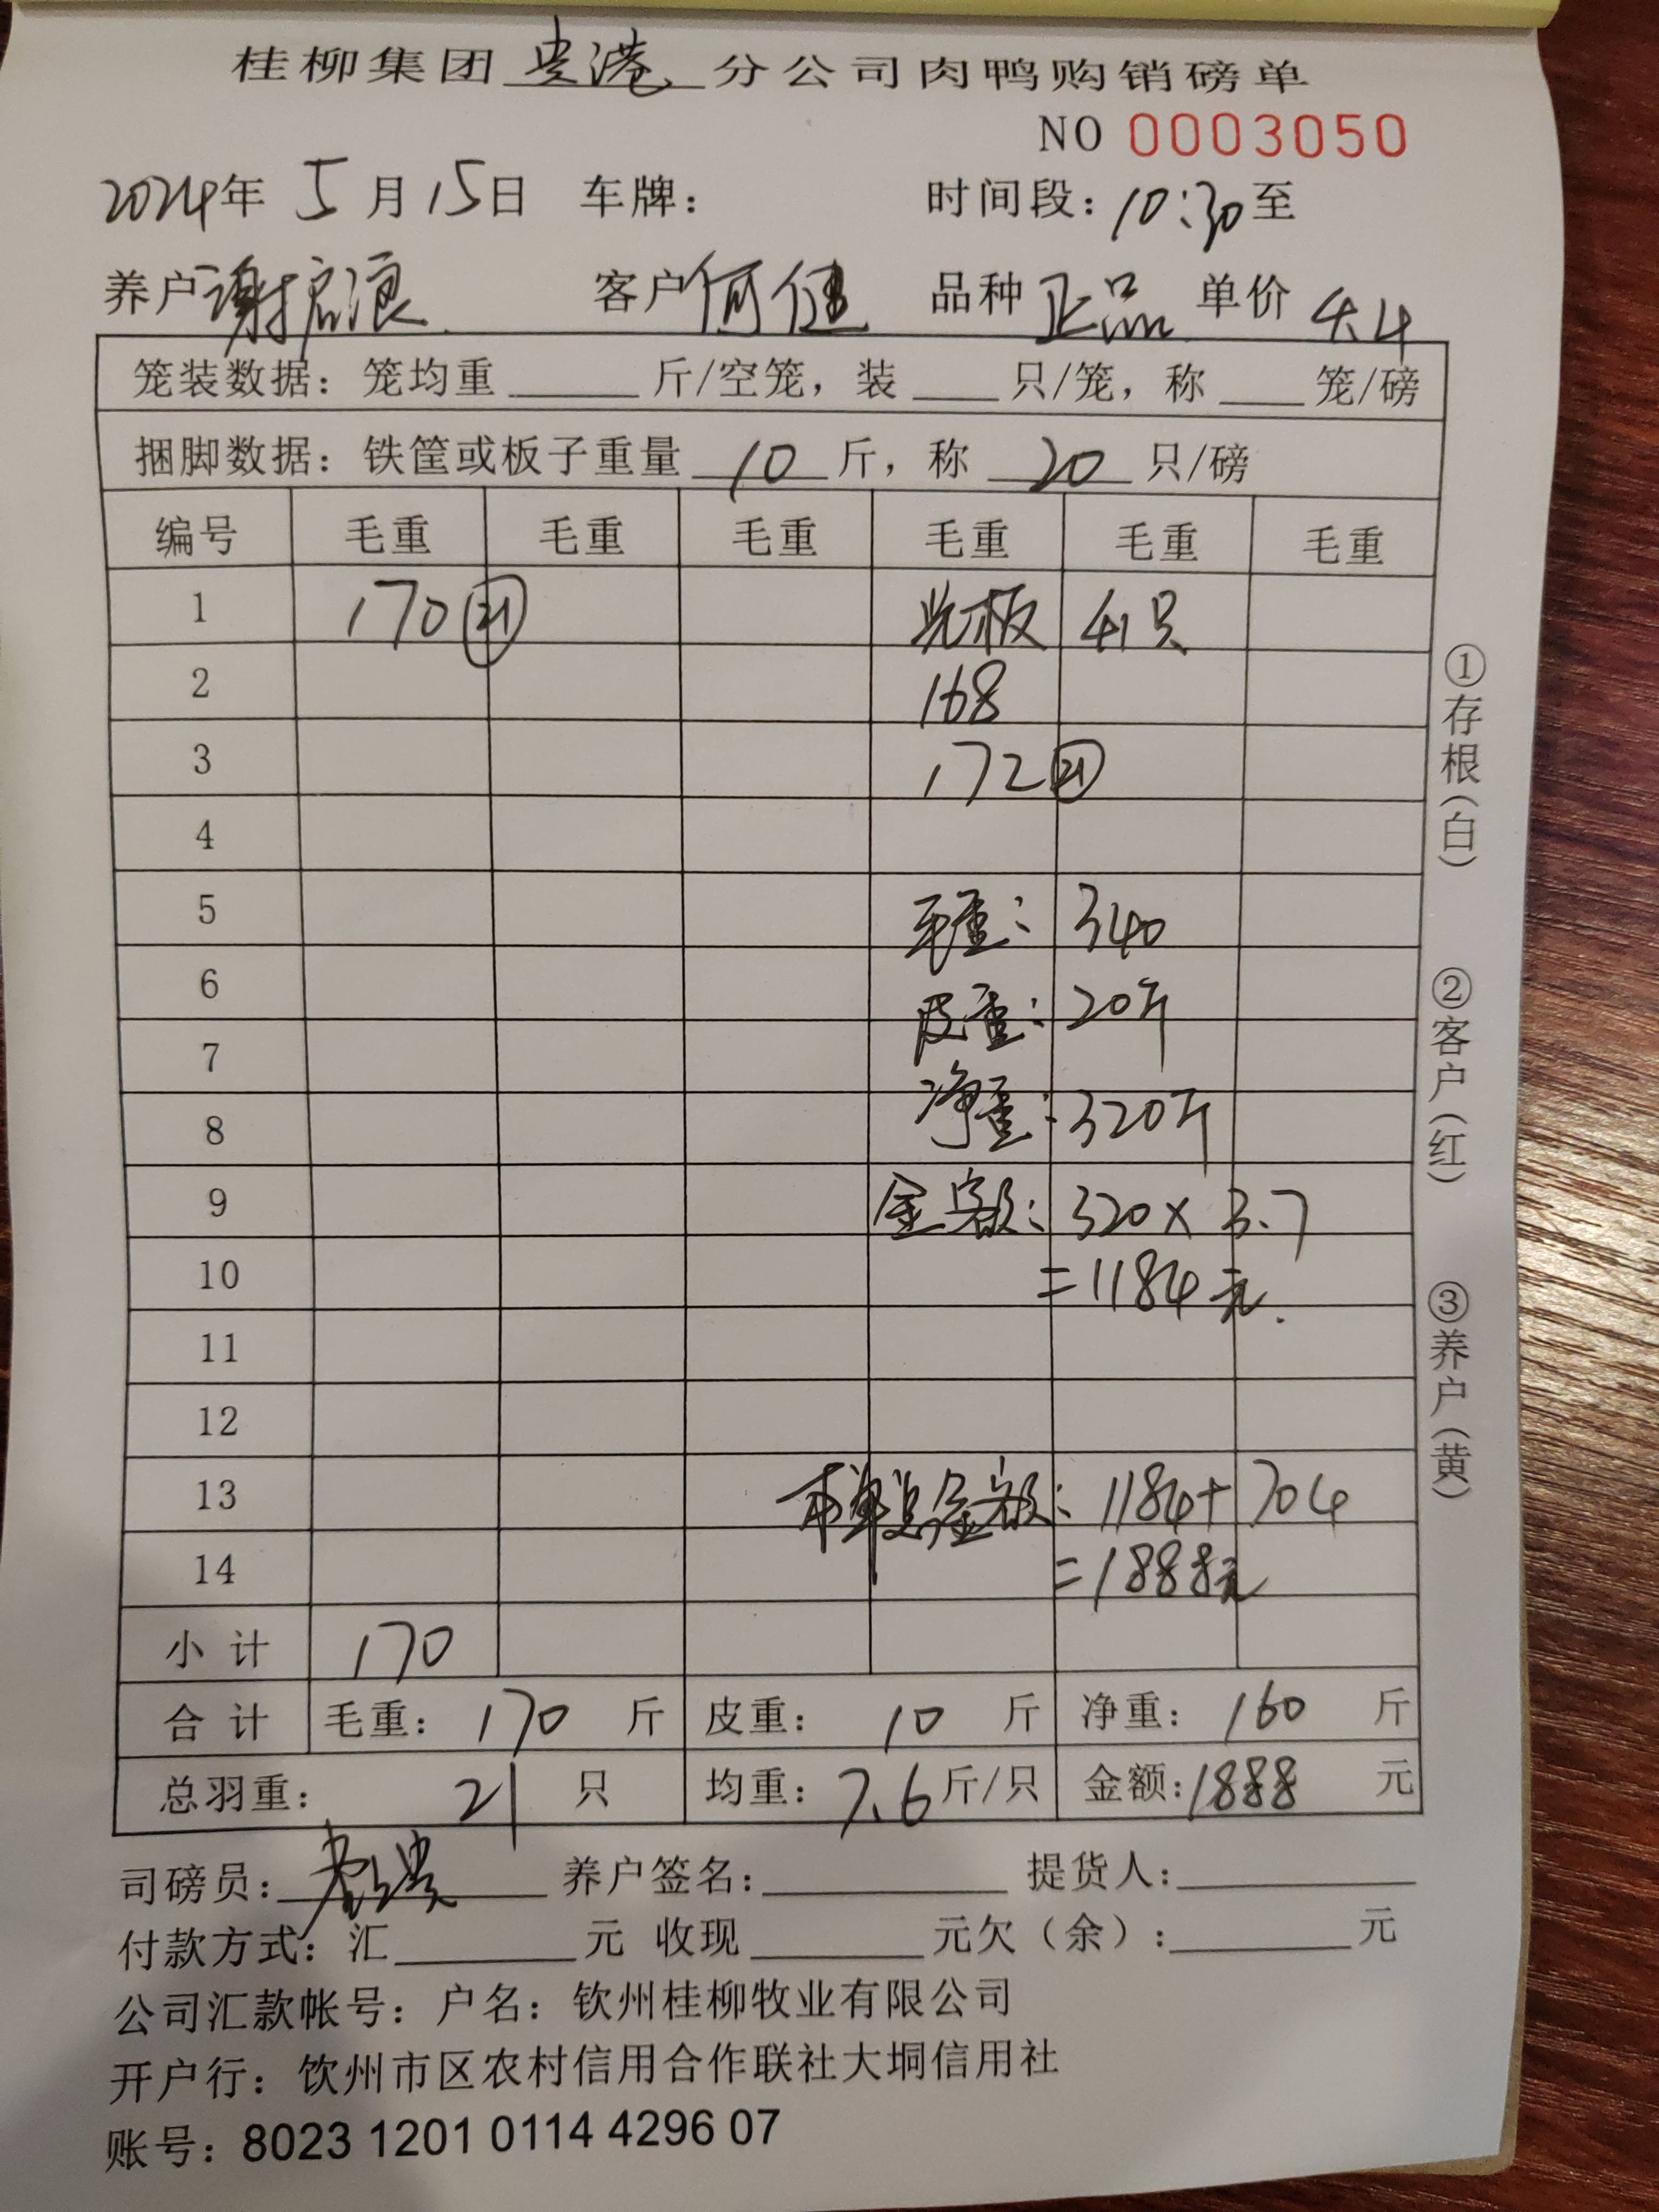 桂柳集团 贵港 分公司肉鸭购销磅单
NO 0003050
2024年 5月15日 车牌： 时间段：10:30至
养户 谢启浪 客户 何健 品种 正品 单价 4.4
笼装数据：笼均重____斤/空笼，装____只/笼，称____笼/磅
捆脚数据：铁筐或板子重量 10 斤，称 20 只/磅
编号 毛重 毛重 毛重 毛重 毛重 毛重
1 170 ㉑ 光板 41只
2 168
3 172 ㉑
4
5 毛重：340
6 皮重：20斤
7
8 净重：320斤
9 金额：320×3.7
10 =1184元.
11
12
13 本单总金额：1184+704
14 =1888元
小计 170
合计 毛重：170 斤 皮重：10 斤 净重：160 斤
总羽重：21 只 均重：7.6斤/只 金额：1888 元
司磅员： 养户签名：____ 提货人：____
付款方式：汇____元 收现____元欠（余）：____元
公司汇款帐号：户名：钦州桂柳牧业有限公司
开户行：饮州市区农村信用合作联社大垌信用社
账号：8023 1201 0114 4296 07
①存根（白）
②客户（红）
③养户（黄）